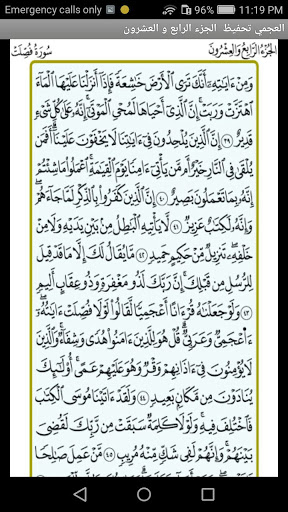 Emergency calls only 11:19 PM
العجمي تحفيظ الجزء الرابع و العشرون
الجُزْءُ الرَّابِعُ وَالعِشْرُونَ سُورَةُ فُصِّلَتْ
وَمِنْ ءَايَٰتِهِۦٓ أَنَّكَ تَرَى ٱلْأَرْضَ خَٰشِعَةً فَإِذَآ أَنزَلْنَا عَلَيْهَا ٱلْمَآءَ
ٱهْتَزَّتْ وَرَبَتْ ۚ إِنَّ ٱلَّذِىٓ أَحْيَاهَا لَمُحْىِ ٱلْمَوْتَىٰٓ ۚ إِنَّهُۥ عَلَىٰ كُلِّ شَىْءٍ
قَدِيرٌ ٣٩ إِنَّ ٱلَّذِينَ يُلْحِدُونَ فِىٓ ءَايَٰتِنَا لَا يَخْفَوْنَ عَلَيْنَآ ۗ أَفَمَن
يُلْقَىٰ فِى ٱلنَّارِ خَيْرٌ أَم مَّن يَأْتِىٓ ءَامِنًا يَوْمَ ٱلْقِيَٰمَةِ ۚ ٱعْمَلُوا۟ مَا شِئْتُمْ ۖ
إِنَّهُۥ بِمَا تَعْمَلُونَ بَصِيرٌ ٤٠ إِنَّ ٱلَّذِينَ كَفَرُوا۟ بِٱلذِّكْرِ لَمَّا جَآءَهُمْ ۖ
وَإِنَّهُۥ لَكِتَٰبٌ عَزِيزٌ ٤١ لَّا يَأْتِيهِ ٱلْبَٰطِلُ مِنۢ بَيْنِ يَدَيْهِ وَلَا مِنْ
خَلْفِهِۦ ۖ تَنزِيلٌ مِّنْ حَكِيمٍ حَمِيدٍ ٤٢ مَّا يُقَالُ لَكَ إِلَّا مَا قَدْ قِيلَ
لِلرُّسُلِ مِن قَبْلِكَ ۚ إِنَّ رَبَّكَ لَذُو مَغْفِرَةٍ وَذُو عِقَابٍ أَلِيمٍ
٤٣ وَلَوْ جَعَلْنَٰهُ قُرْءَانًا أَعْجَمِيًّا لَّقَالُوا۟ لَوْلَا فُصِّلَتْ ءَايَٰتُهُۥٓ ۖ
ءَا۬عْجَمِىٌّ وَعَرَبِىٌّ ۗ قُلْ هُوَ لِلَّذِينَ ءَامَنُوا۟ هُدًى وَشِفَآءٌ ۖ وَٱلَّذِينَ
لَا يُؤْمِنُونَ فِىٓ ءَاذَانِهِمْ وَقْرٌ وَهُوَ عَلَيْهِمْ عَمًى ۚ أُو۟لَٰٓئِكَ
يُنَادَوْنَ مِن مَّكَانٍۭ بَعِيدٍ ٤٤ وَلَقَدْ ءَاتَيْنَا مُوسَى ٱلْكِتَٰبَ
فَٱخْتُلِفَ فِيهِ ۗ وَلَوْلَا كَلِمَةٌ سَبَقَتْ مِن رَّبِّكَ لَقُضِىَ
بَيْنَهُمْ ۚ وَإِنَّهُمْ لَفِى شَكٍّ مِّنْهُ مُرِيبٍ ٤٥ مَّنْ عَمِلَ صَٰلِحًا